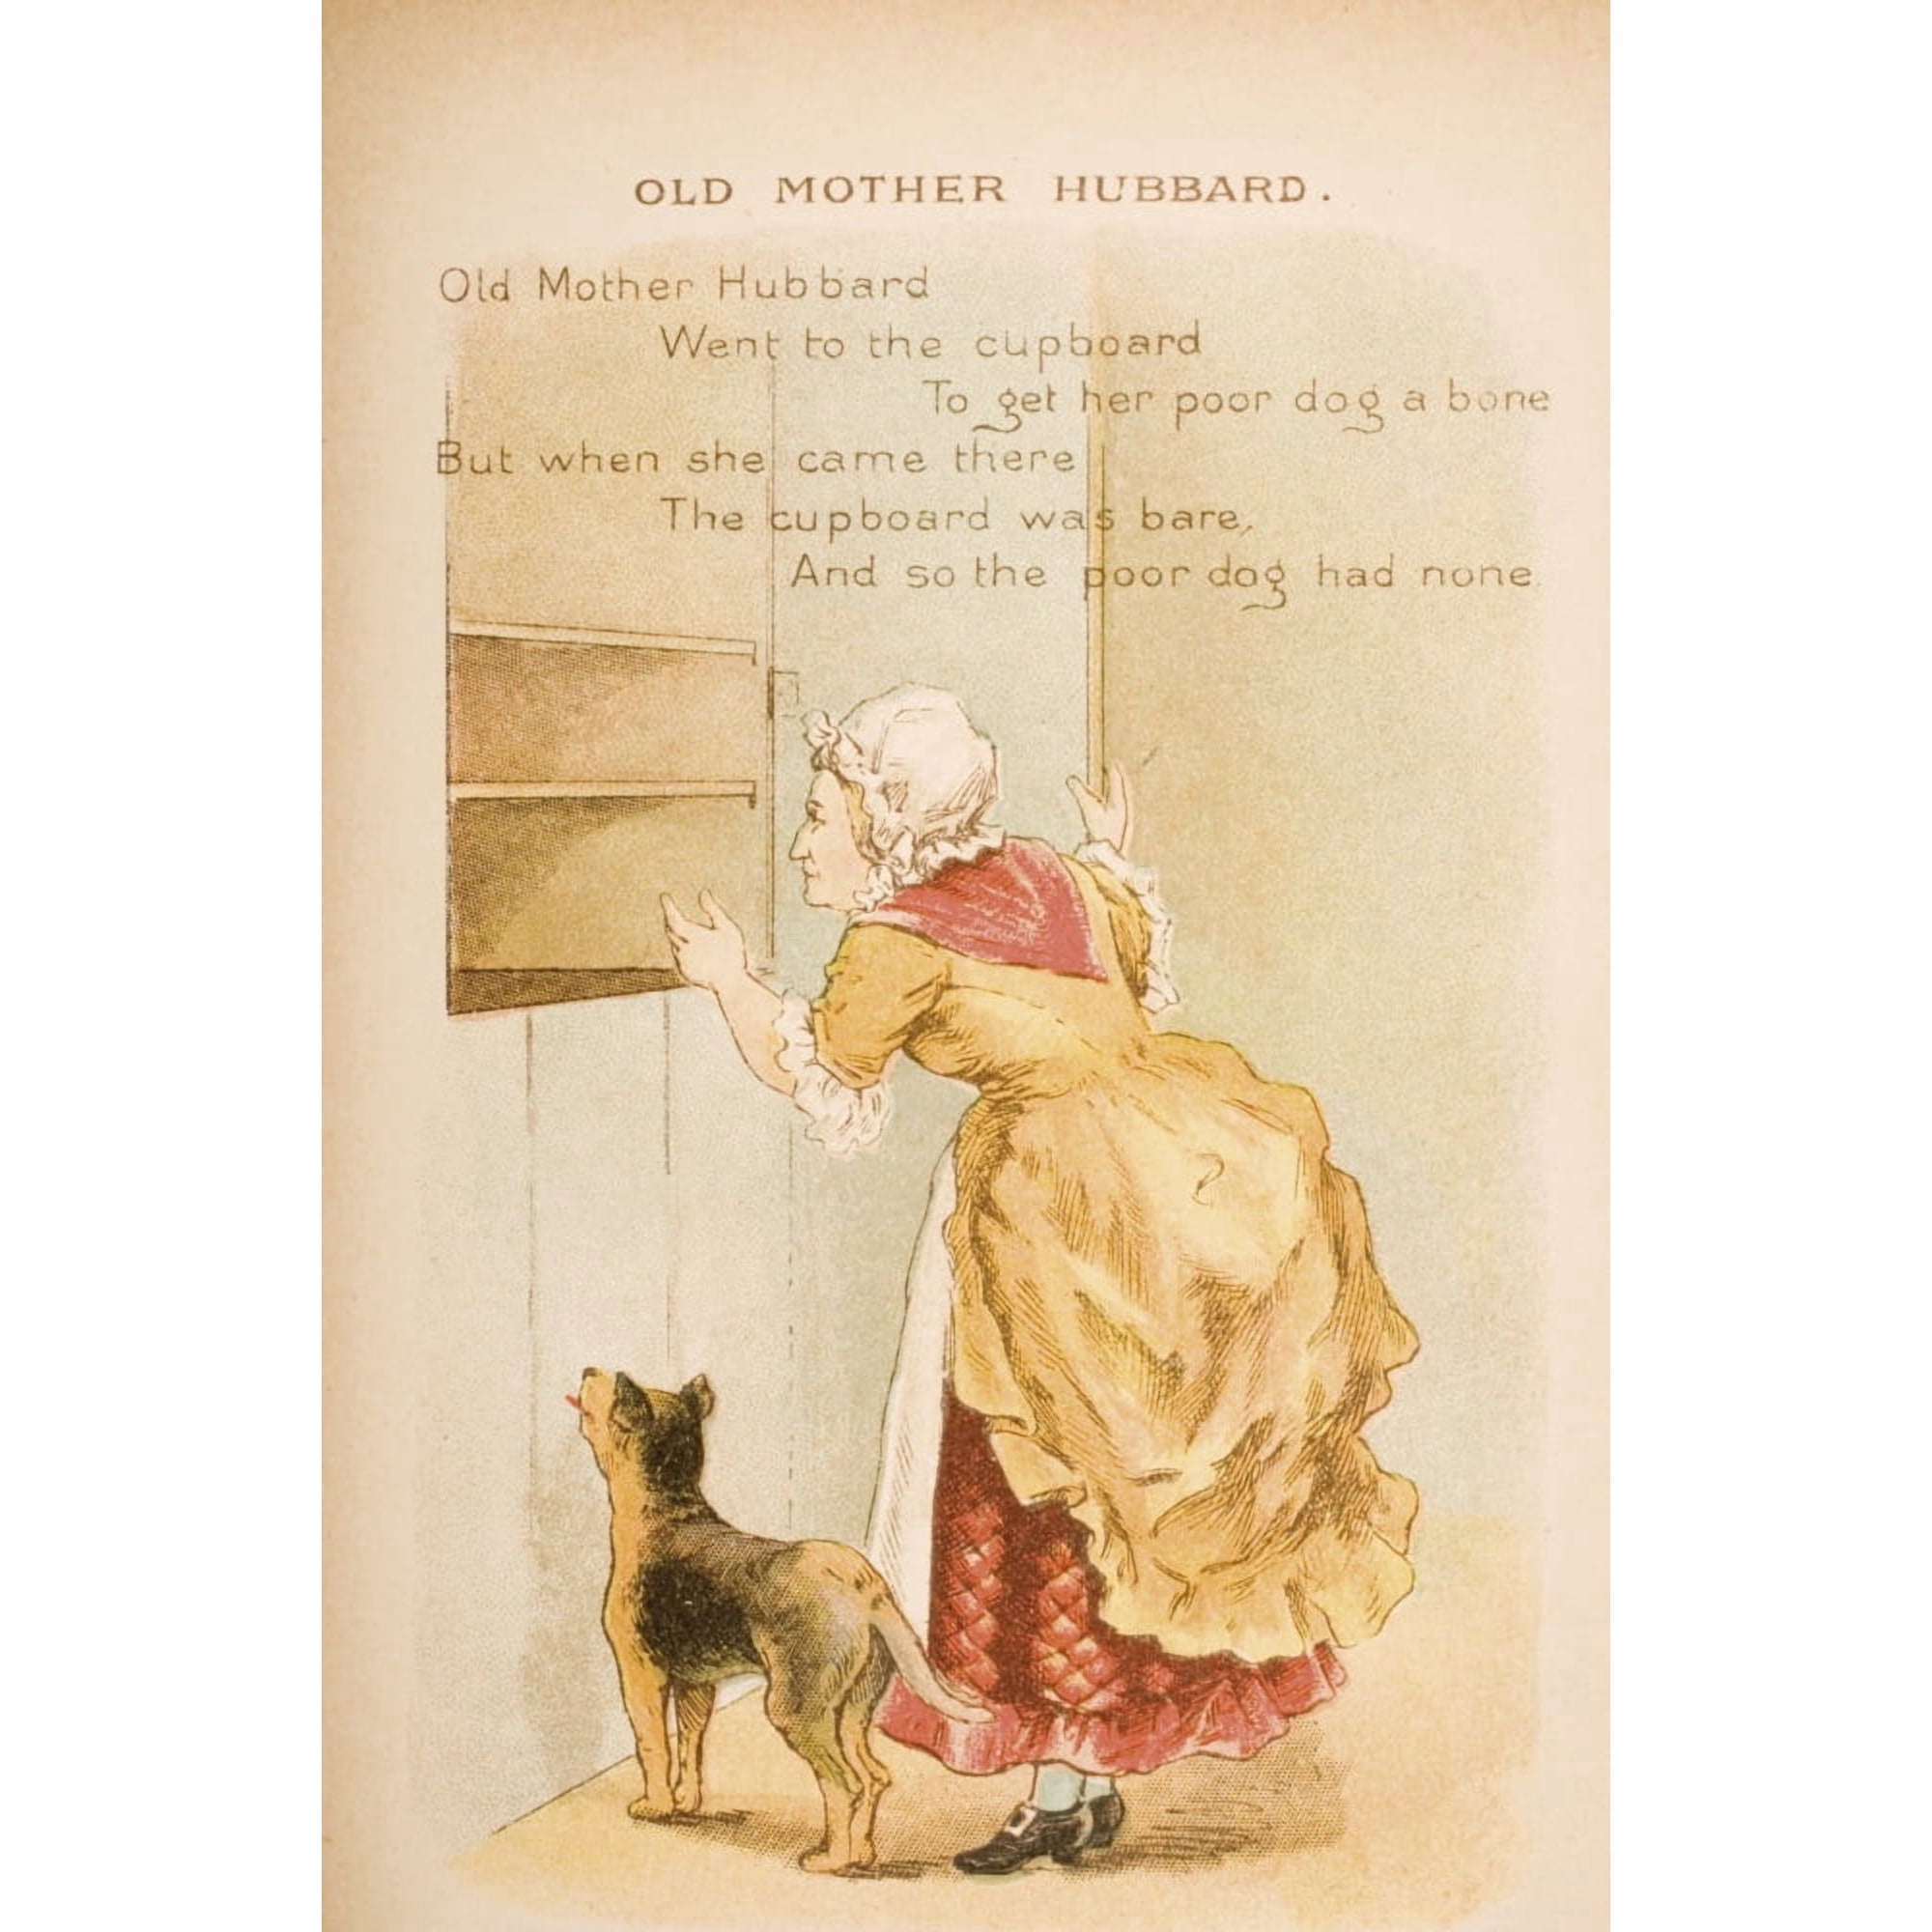 OLD MOTHER HUBBARD.
Old Mother Hubbard
Went to the cupboard
To get her poor dog a bone
But when she came there
The cupboard was bare,
And so the poor dog had none.